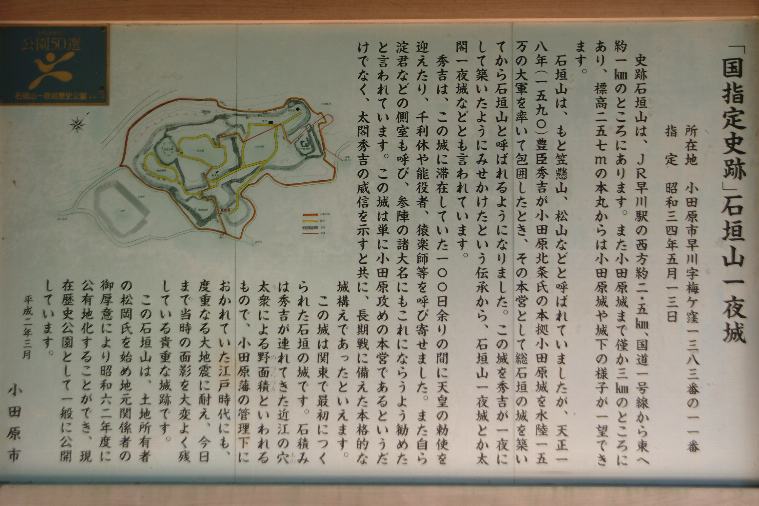 「国指定史跡」石垣山一夜城
所在地　小田原市早川字梅ケ窪一三八三番の一一番
指　定　昭和三四年五月一三日
史跡石垣山は、JR早川駅の西方約二・五㎞、国道一号線から東へ
約一㎞のところにあります。また小田原城まで僅か三㎞のところに
あり、標高二五七mの本丸からは小田原城や城下の様子が一望でき
ます。
石垣山は、もと笠懸山、松山などと呼ばれていましたが、天正一
八年（一五九〇）豊臣秀吉が小田原北条氏の本拠小田原城を水陸一五
万の大軍を率いて包囲したとき、その本営として総石垣の城を築い
てから石垣山と呼ばれるようになりました。この城を秀吉が一夜に
して築いたようにみせかけたという伝承から、石垣山一夜城とか太
閤一夜城などとも言われています。
秀吉は、この城に滞在していた一〇〇日余りの間に天皇の勅使を
迎えたり、千利休や能役者、猿楽師等を呼び寄せました。また自ら
淀君などの側室も呼び、参陣の諸大名にもこれにならうよう勧めた
と言われています。この城は単に小田原攻めの本営であるというだ
けでなく、太閤秀吉の威信を示すと共に、長期戦に備えた本格的な
城構えであったといえます。
この城は関東で最初につく
られた石垣の城です。石積み
は秀吉が連れてきた近江の穴
太衆による野面積といわれる
もので、小田原藩の管理下に
おかれていた江戸時代にも、
度重なる大地震に耐え、今日
まで当時の面影を大変よく残
している貴重な城跡です。
この石垣山は、土地所有者
の松岡氏を始め地元関係者の
御厚意により昭和六二年度に
公有地化することができ、現
在歴史公園として一般に公開
しています。
平成二年三月
小田原市
公園50選
石垣山一夜城歴史公園